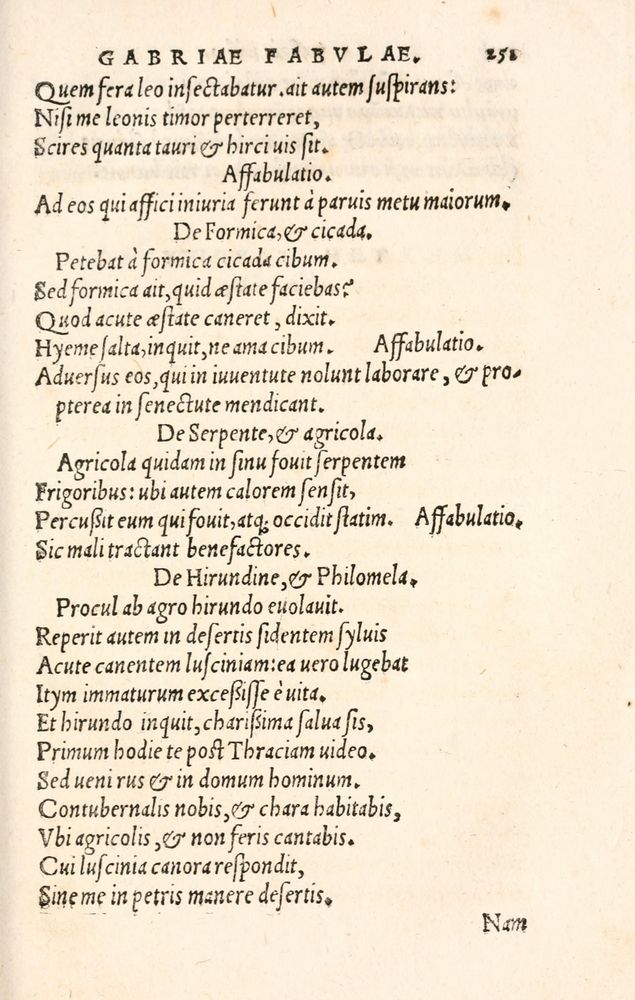 GABRIAE FABVLAE. 251
Quem fera leo insectabatur. ait autem suspirans:
Nisi me leonis timor perterreret,
Scires quanta tauri & hirci uis sit.
Affabulatio.
Ad eos qui affici iniuria ferunt à paruis metu maiorum.
De Formica, & cicada.
Petebat à formica cicada cibum.
Sed formica ait, quid æstate faciebas?
Quod acute æstate caneret, dixit.
Hyeme salta, inquit, ne ama cibum. Affabulatio.
Adversus eos, qui in iuuentute nolunt laborare, & pro-
pterea in senectute mendicant.
De Serpente, & agricola.
Agricola quidam in sinu fouit serpentem
Frigoribus: ubi autem calorem sensit,
Percußit eum qui fouit, atq; occidit statim. Affabulatio.
Sic mali tractant benefactores.
De Hirundine, & Philomela.
Procul ab agro hirundo euolauit.
Reperit autem in desertis sidentem syluis
Acute canentem lusciniam: ea uero lugebat
Itym immaturum exceßisse è uita.
Et hirundo inquit, charißima salua sis,
Primum hodie te post Thraciam uideo.
Sed ueni rus & in domum hominum.
Contubernalis nobis, & chara habitabis,
Vbi agricolis, & non feris cantabis.
Cui luscinia canora respondit,
Sine me in petris manere desertis.
Nam